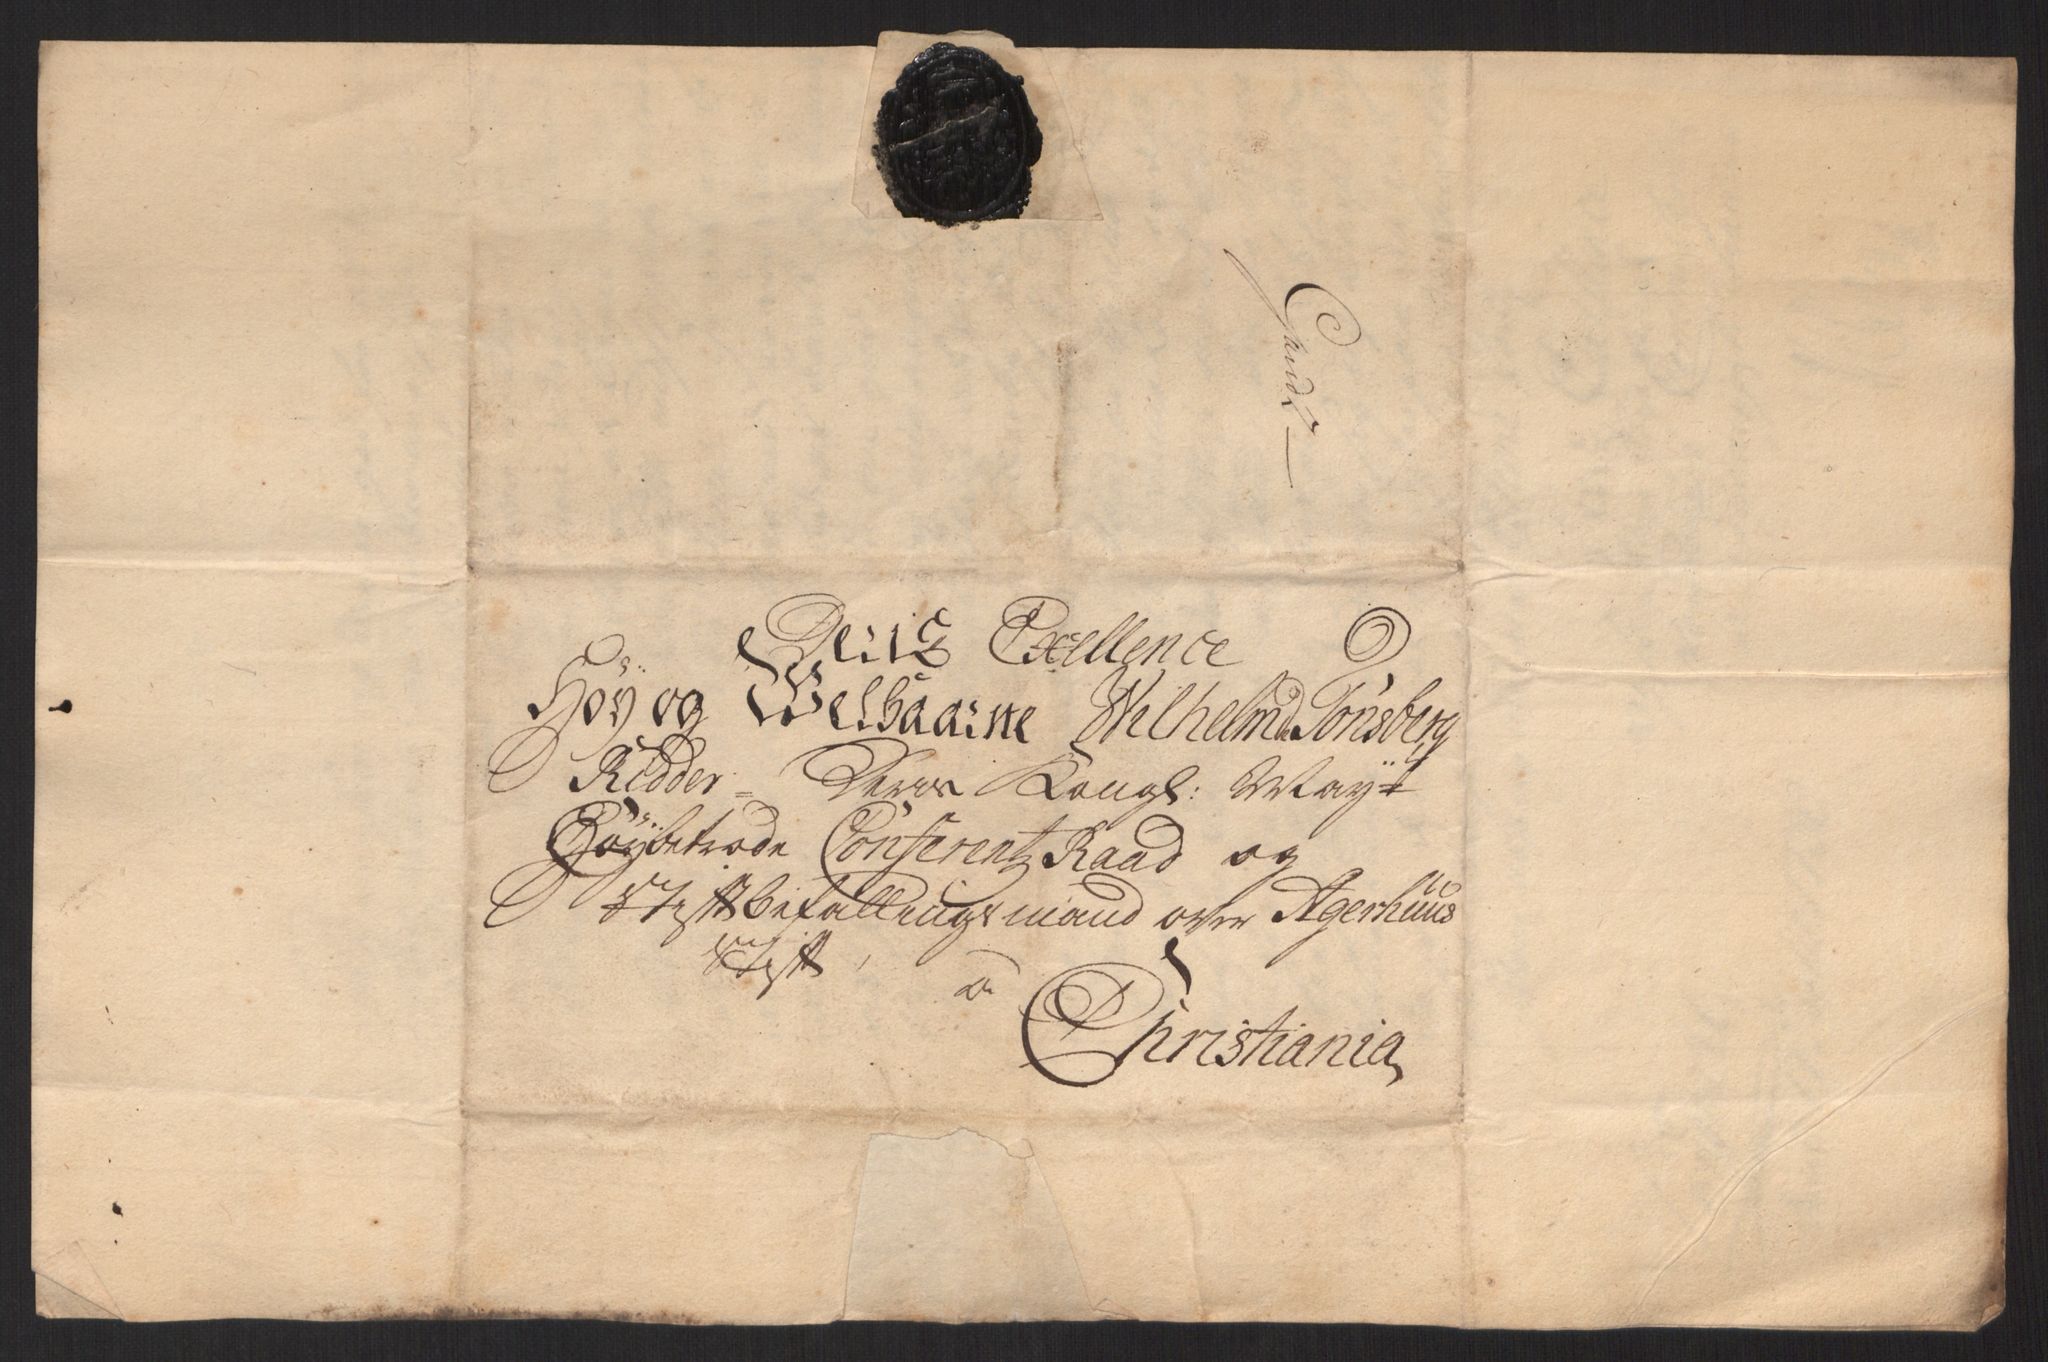 Deris Exellence
Höÿ og Welbaarne Wilhelm de Tonsberg
Ridder = Deris Kongl: Maÿ:t
Höÿbetrode Conferentz Raad og
Stiftbefallingsmand over Agerhuus
Stift, a
Christiania